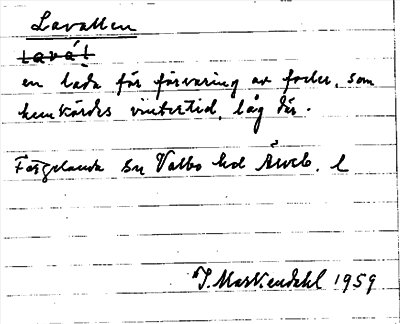 Lavallen
en lada för förvaring av foder, som
hemkördes vintertid, låg där.
Färgelanda sn Valbo hd Älvsb. l
J. Markendahl 1959